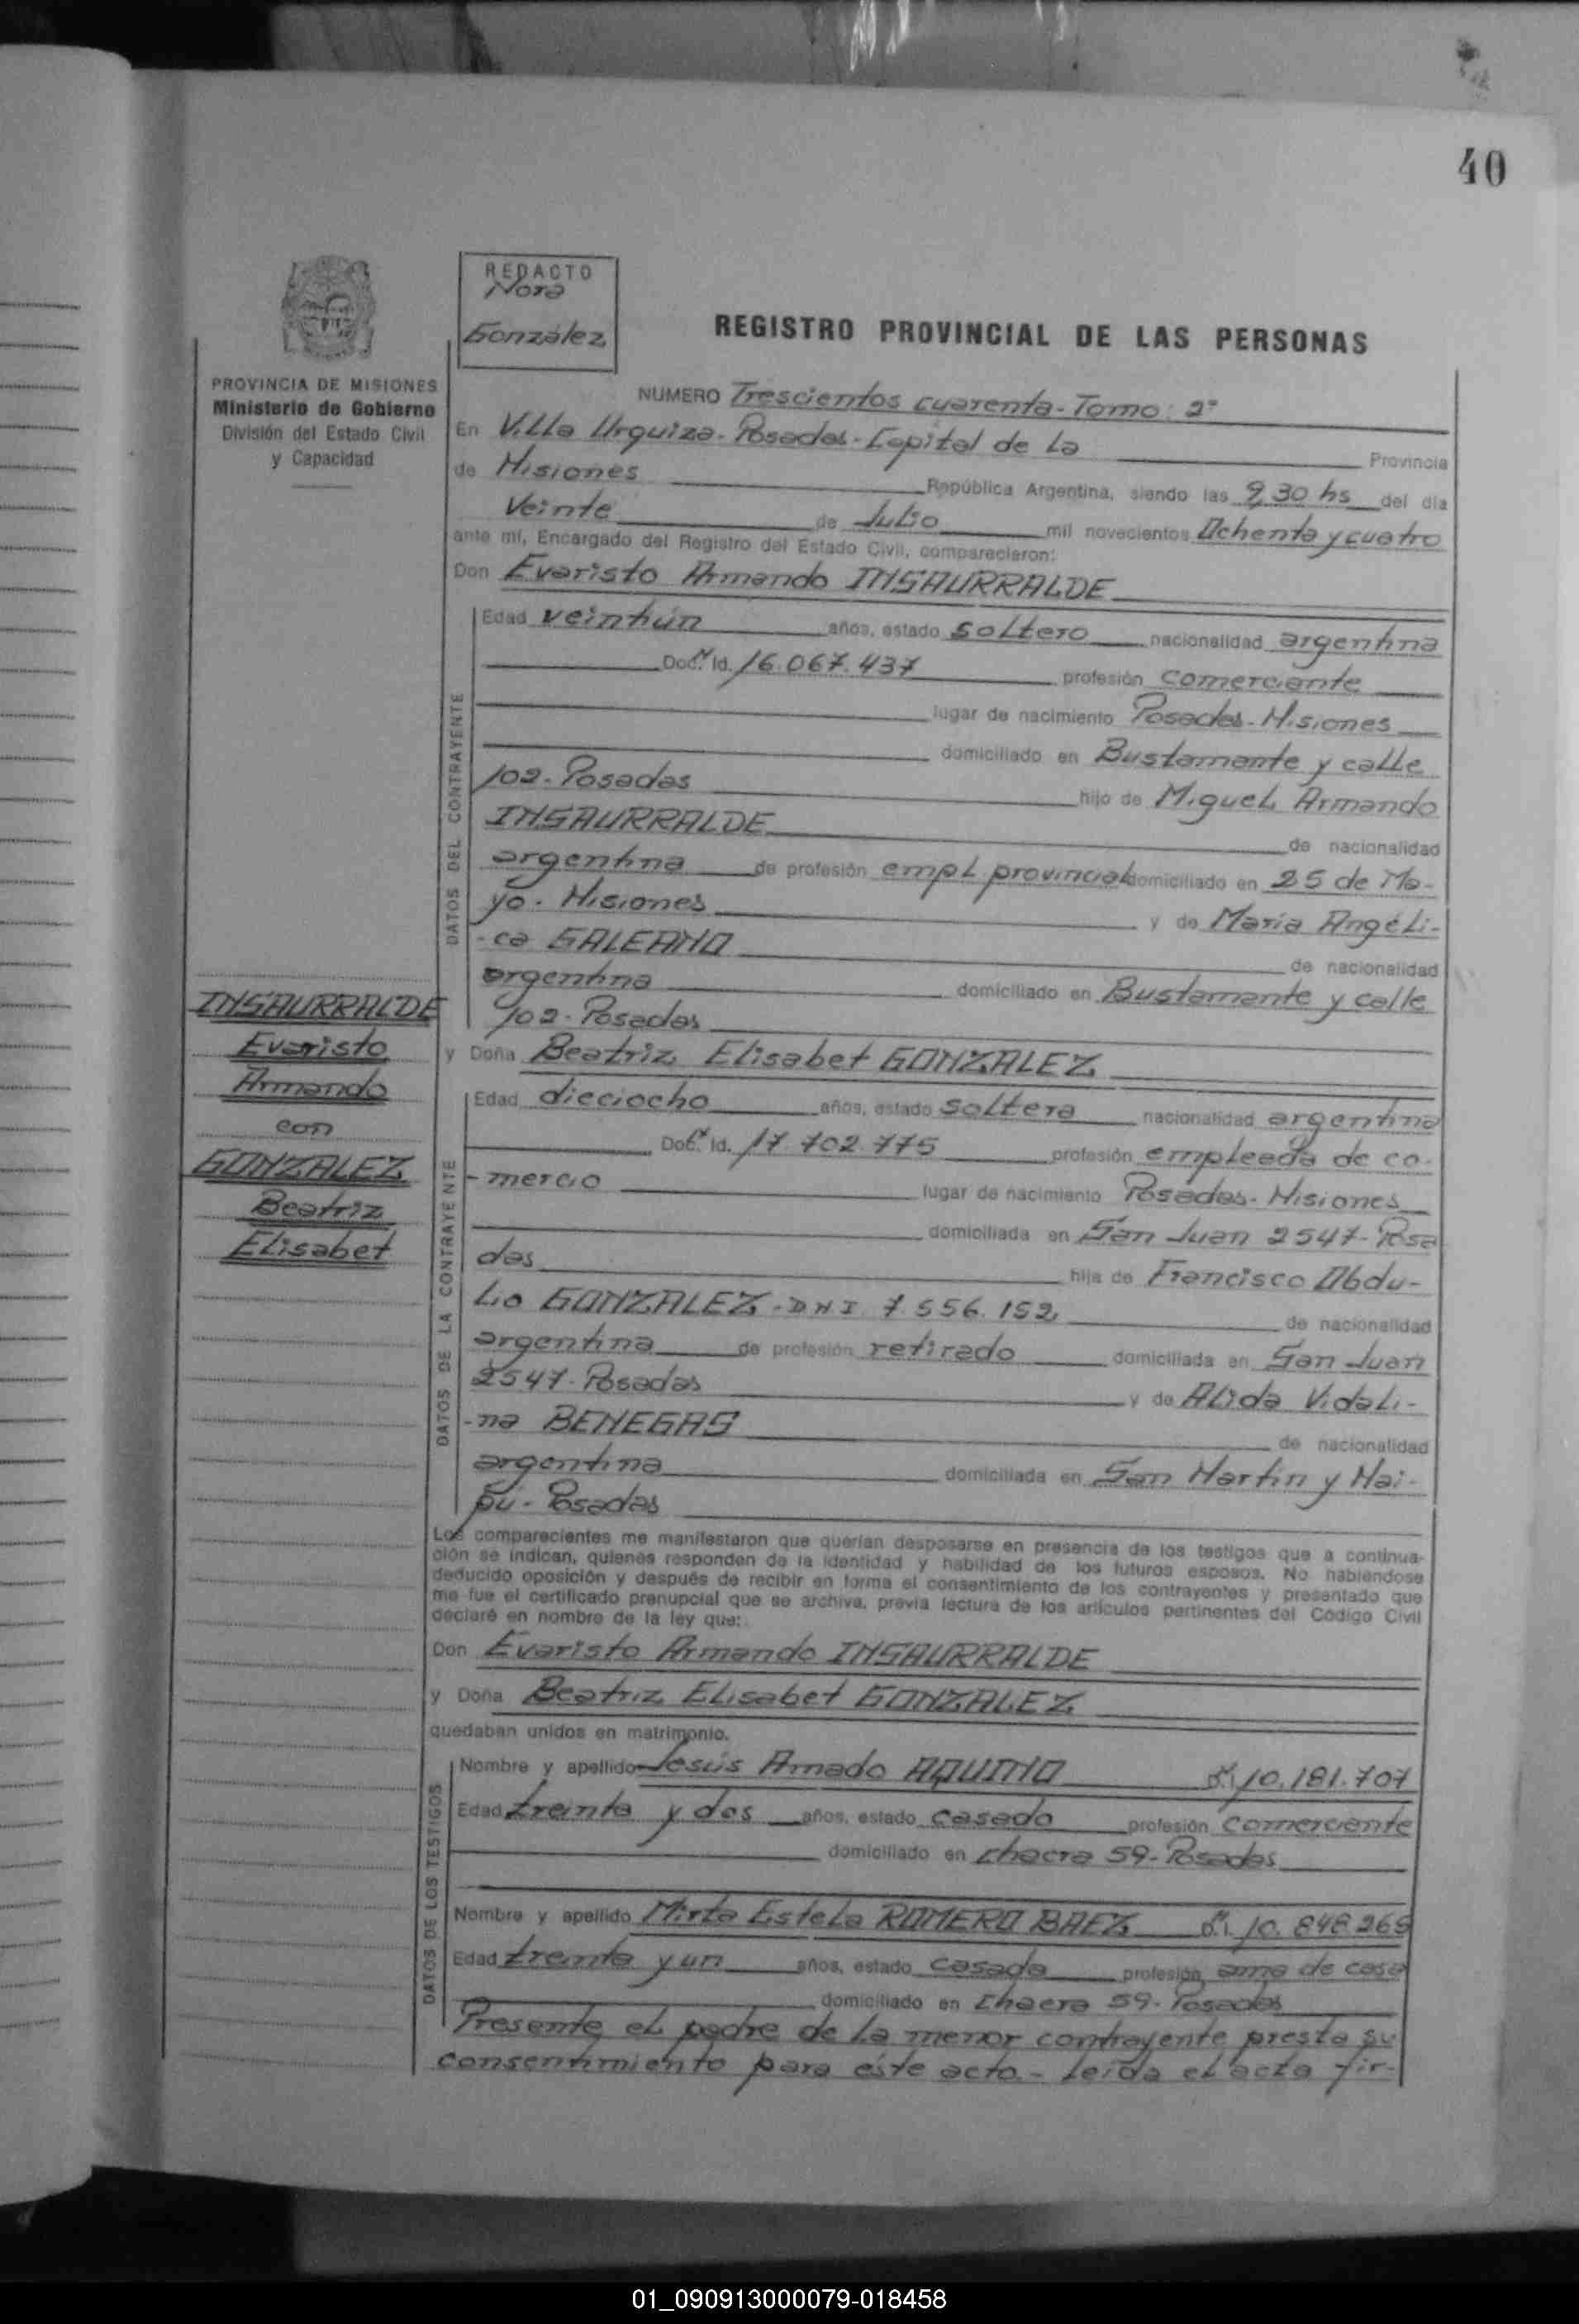 40
REDACTO
Nora
González
REGISTRO PROVINCIAL DE LAS PERSONAS
PROVINCIA DE MISIONES
Ministerio de Gobierno
División del Estado Civil
y Capacidad
NUMERO Trescientos cuarenta - Tomo: 2º
En Villa Urquiza - Posadas - Capital de la Provincia
de Misiones República Argentina, siendo las 9,30 hs del día
Veinte de Julio mil novecientos Ochenta y cuatro
ante mí, Encargado del Registro del Estado Civil, comparecieron:
Don Evaristo Armando INSAURRALDE
DATOS DEL CONTRAYENTE
Edad veintiún años, estado soltero nacionalidad argentina
Doc. Id. 16.067.437 profesión comerciante
lugar de nacimiento Posadas - Misiones
domiciliado en Bustamante y calle
102 - Posadas hijo de Miguel Armando
INSAURRALDE de nacionalidad
argentina de profesión empl provincial domiciliado en 25 de Ma-
yo - Misiones y de María Angéli-
-ca GALEANO de nacionalidad
argentina domiciliado en Bustamante y calle
102 - Posadas
INSAURRALDE
Evaristo
Armando
con
GONZALEZ
Beatriz
Elisabet
y Doña Beatriz Elisabet GONZALEZ
DATOS DE LA CONTRAYENTE
Edad dieciocho años, estado soltera nacionalidad argentina
Doc. Id. 17.702.775 profesión empleada de co-
-mercio lugar de nacimiento Posadas - Misiones
domiciliada en San Juan 2547 - Posa
das hija de Francisco Obdu-
lio GONZALEZ - DNI 7.556.152 de nacionalidad
argentina de profesión retirado domiciliada en San Juan
2547 - Posadas y de Alida Vidali-
-na BENEGAS de nacionalidad
argentina domiciliada en San Martín y Mai-
pú - Posadas
Los comparecientes me manifestaron que querían desposarse en presencia de los testigos que a continua-
ción se indican, quienes responden de la identidad y habilidad de los futuros esposos. No habiéndose
deducido oposición y después de recibir en forma el consentimiento de los contrayentes y presentado que
me fue el certificado prenupcial que se archiva, previa lectura de los artículos pertinentes del Código Civil
declaré en nombre de la ley que:
Don Evaristo Armando INSAURRALDE
y Doña Beatriz Elisabet GONZALEZ
quedaban unidos en matrimonio.
DATOS DE LOS TESTIGOS
Nombre y apellido Jesús Amado AQUINO 10.181.707
Edad treinta y dos años, estado casado profesión comerciante
domiciliado en chacra 59 - Posadas
Nombre y apellido Mirta Estela ROMERO BAEZ 10.848.269
Edad treinta y un años, estado casada profesión ama de casa
domiciliado en chacra 59 - Posadas
Presente el padre de la menor contrayente presta su
consentimiento para éste acto.- Leída el acta fir-
01_090913000079-018458